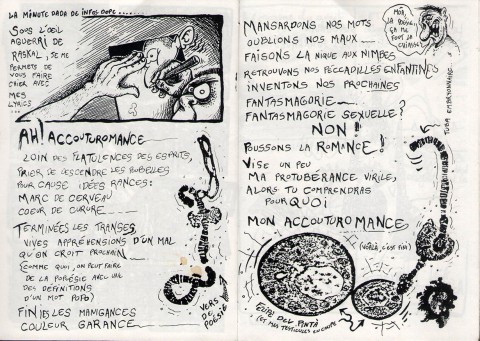 LA MINUTE DADA DE INFOS DOPE........
SOUS L'OEIL
AGUERRI DE
RASKAL, JE ME
PERMETS DE
VOUS FAIRE
CHIER AVEC
MES
LYRICS ...
AH! ACCOUTUROMANCE
LOIN DES FLATULENCES DES ESPRITS,
PRIER DE DESCENDRE LES POUBELLES
POUR CAUSE IDÉES RANCES:
MARC DE CERVEAU
COEUR DE CURURE
TERMINÉES LES TRANSES,
VIVES APPRÉHENSIONS D'UN MAL
QU'ON CROIT PROCHAIN
(COMME QUOI, ON PEUT FAIRE
DE LA POPÉSIE AVEC UNE
DES DÉFINITIONS
D'UN MOT POPO)
FINIES LES MANIGANCES
COULEUR GARANCE
VERS
DE
POÉSIE
MANSARDONS NOS MOTS
OUBLIONS NOS MAUX
FAISONS LA NIQUE AUX NIMBES
RETROUVONS NOS PÉCCADILLES ENFANTINES
INVENTONS NOS PROCHAINES
FANTASMAGORIE
FANTASMAGORIE SEXUELLE?
NON!
POUSSONS LA ROMANCE!
VISE UN PEU
MA PROTUBÉRANCE VIRILE,
ALORS TU COMPRENDRAS
POURQUOI
MON ACCOUTUROMANCE
(VOILÀ, C'EST FINI)
MOA,
LA POÉSIE,
ÇA ME
FOUT LA
TUBA EMBRYONNAIRE
(ET MES TESTICULES EN COUPE)